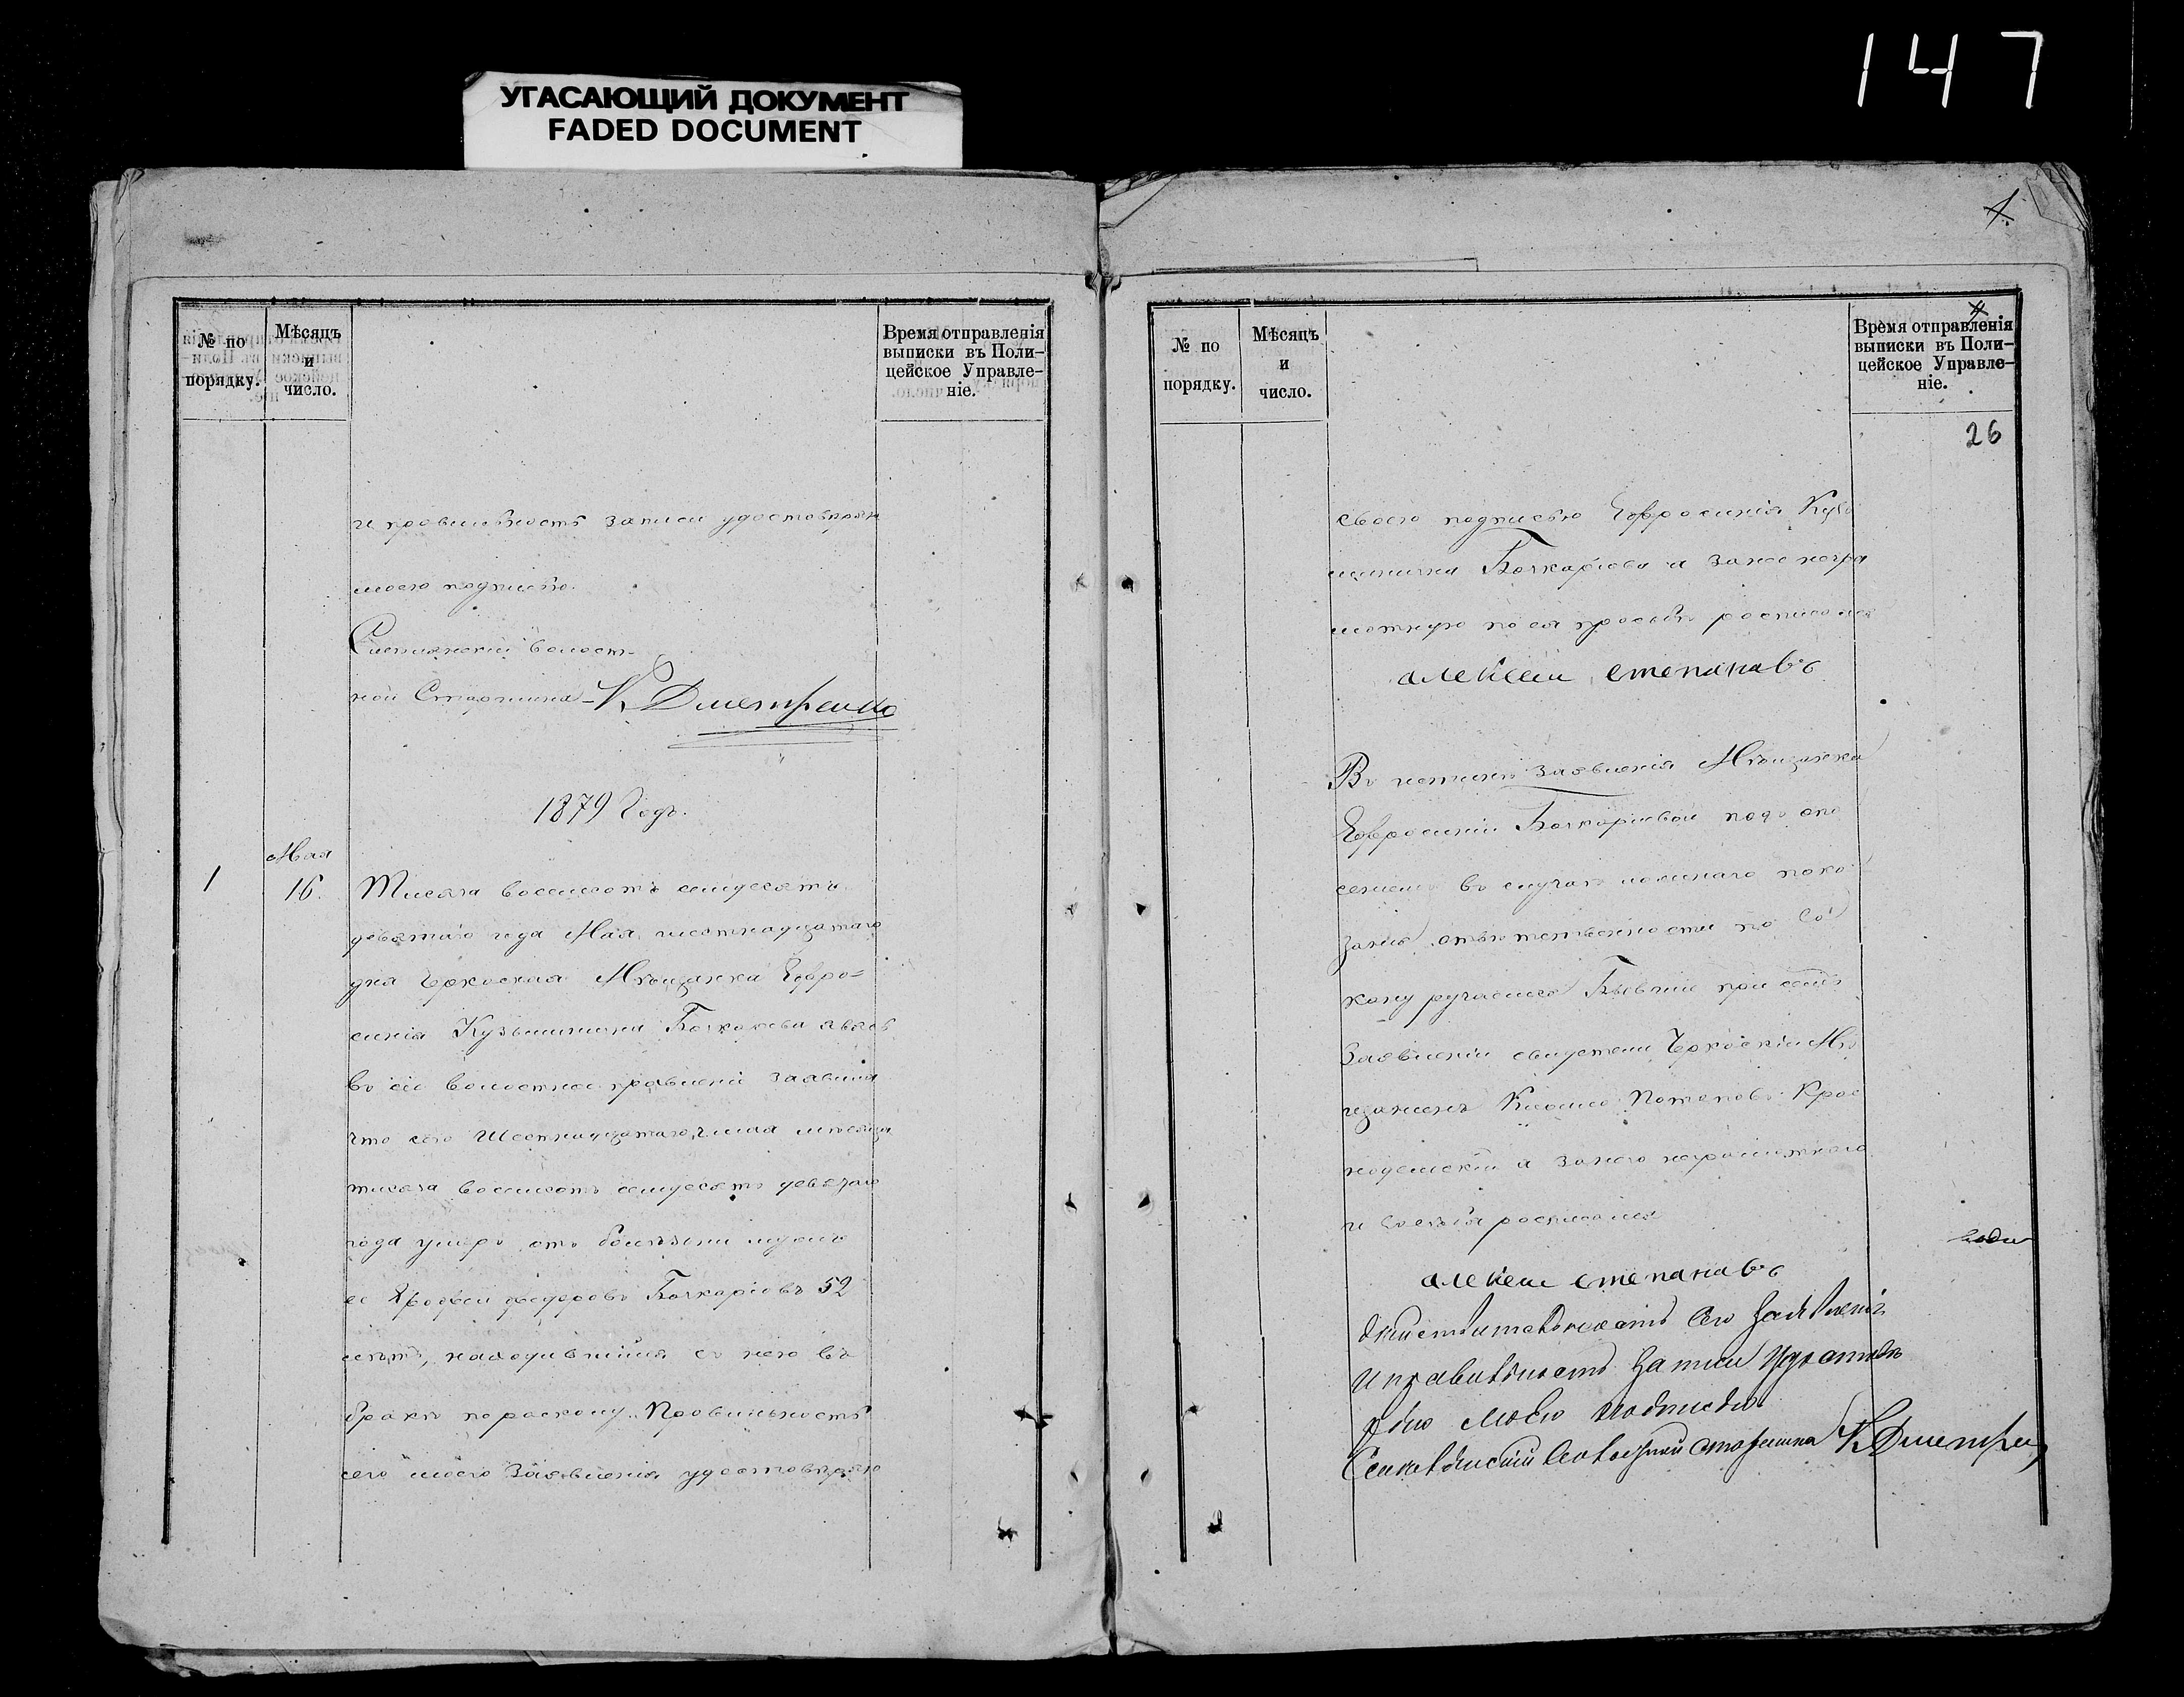 147
УГАСАЮЩИЙ ДОКУМЕНТ
FADED DOCUMENT
№ по порядку.
Мѣсяцъ и число.
Время отправленія выписки въ Поли-
цейское Управле-
ніе.
и правильность записи удостовѣряю
моею подписью.
волост-
ной Старшина К Дметренко
1879 Годъ.
Мая
1
16.
Тисяча восемсотъ семдесятъ
девятаго года Мая шестнадцатаго
дня Мѣщанка Евфро=
синія Кузьминична Бочкарева явясь
въ сіе волостное правленіе заявила
что сего шестнадцатаго мая мѣсяца
тисяча восемсотъ семдесятъ девятаго
года умеръ отъ болѣзни мужъ
ее федоровъ Бочкаріовъ 52
лѣтъ, находившійся съ нею въ
бракѣ по расколу. Правильность
сего моего Заявленія удостовѣряю
№ по порядку.
Мѣсяцъ и число.
Время отправленія
выписки въ Поли-
цейское Управле-
ніе.
26
своею подписью Евфросинія Кузь
минична Бочкаріова а за нее негра
мотную по ея просьбѣ росписался
алексеи степанавъ
Въ истинѣ заявленія Мѣщанки
Евфросиніи Бочкаріовой подъ опа
сеніемъ въ случаѣ ложнаго пока
занія отвѣтственности по За
кону ручаемся Бывшіе при семъ
Заявленіи свидетели Мѣ
щанинъ Потаповъ Крас
а за него неграмотнаго
и за себя росписался
алексеи степанавъ
дѣйствительность сего заявленія
и правильность записи удостовѣ
ряю моею подписью
волостной старшина К Дметрен